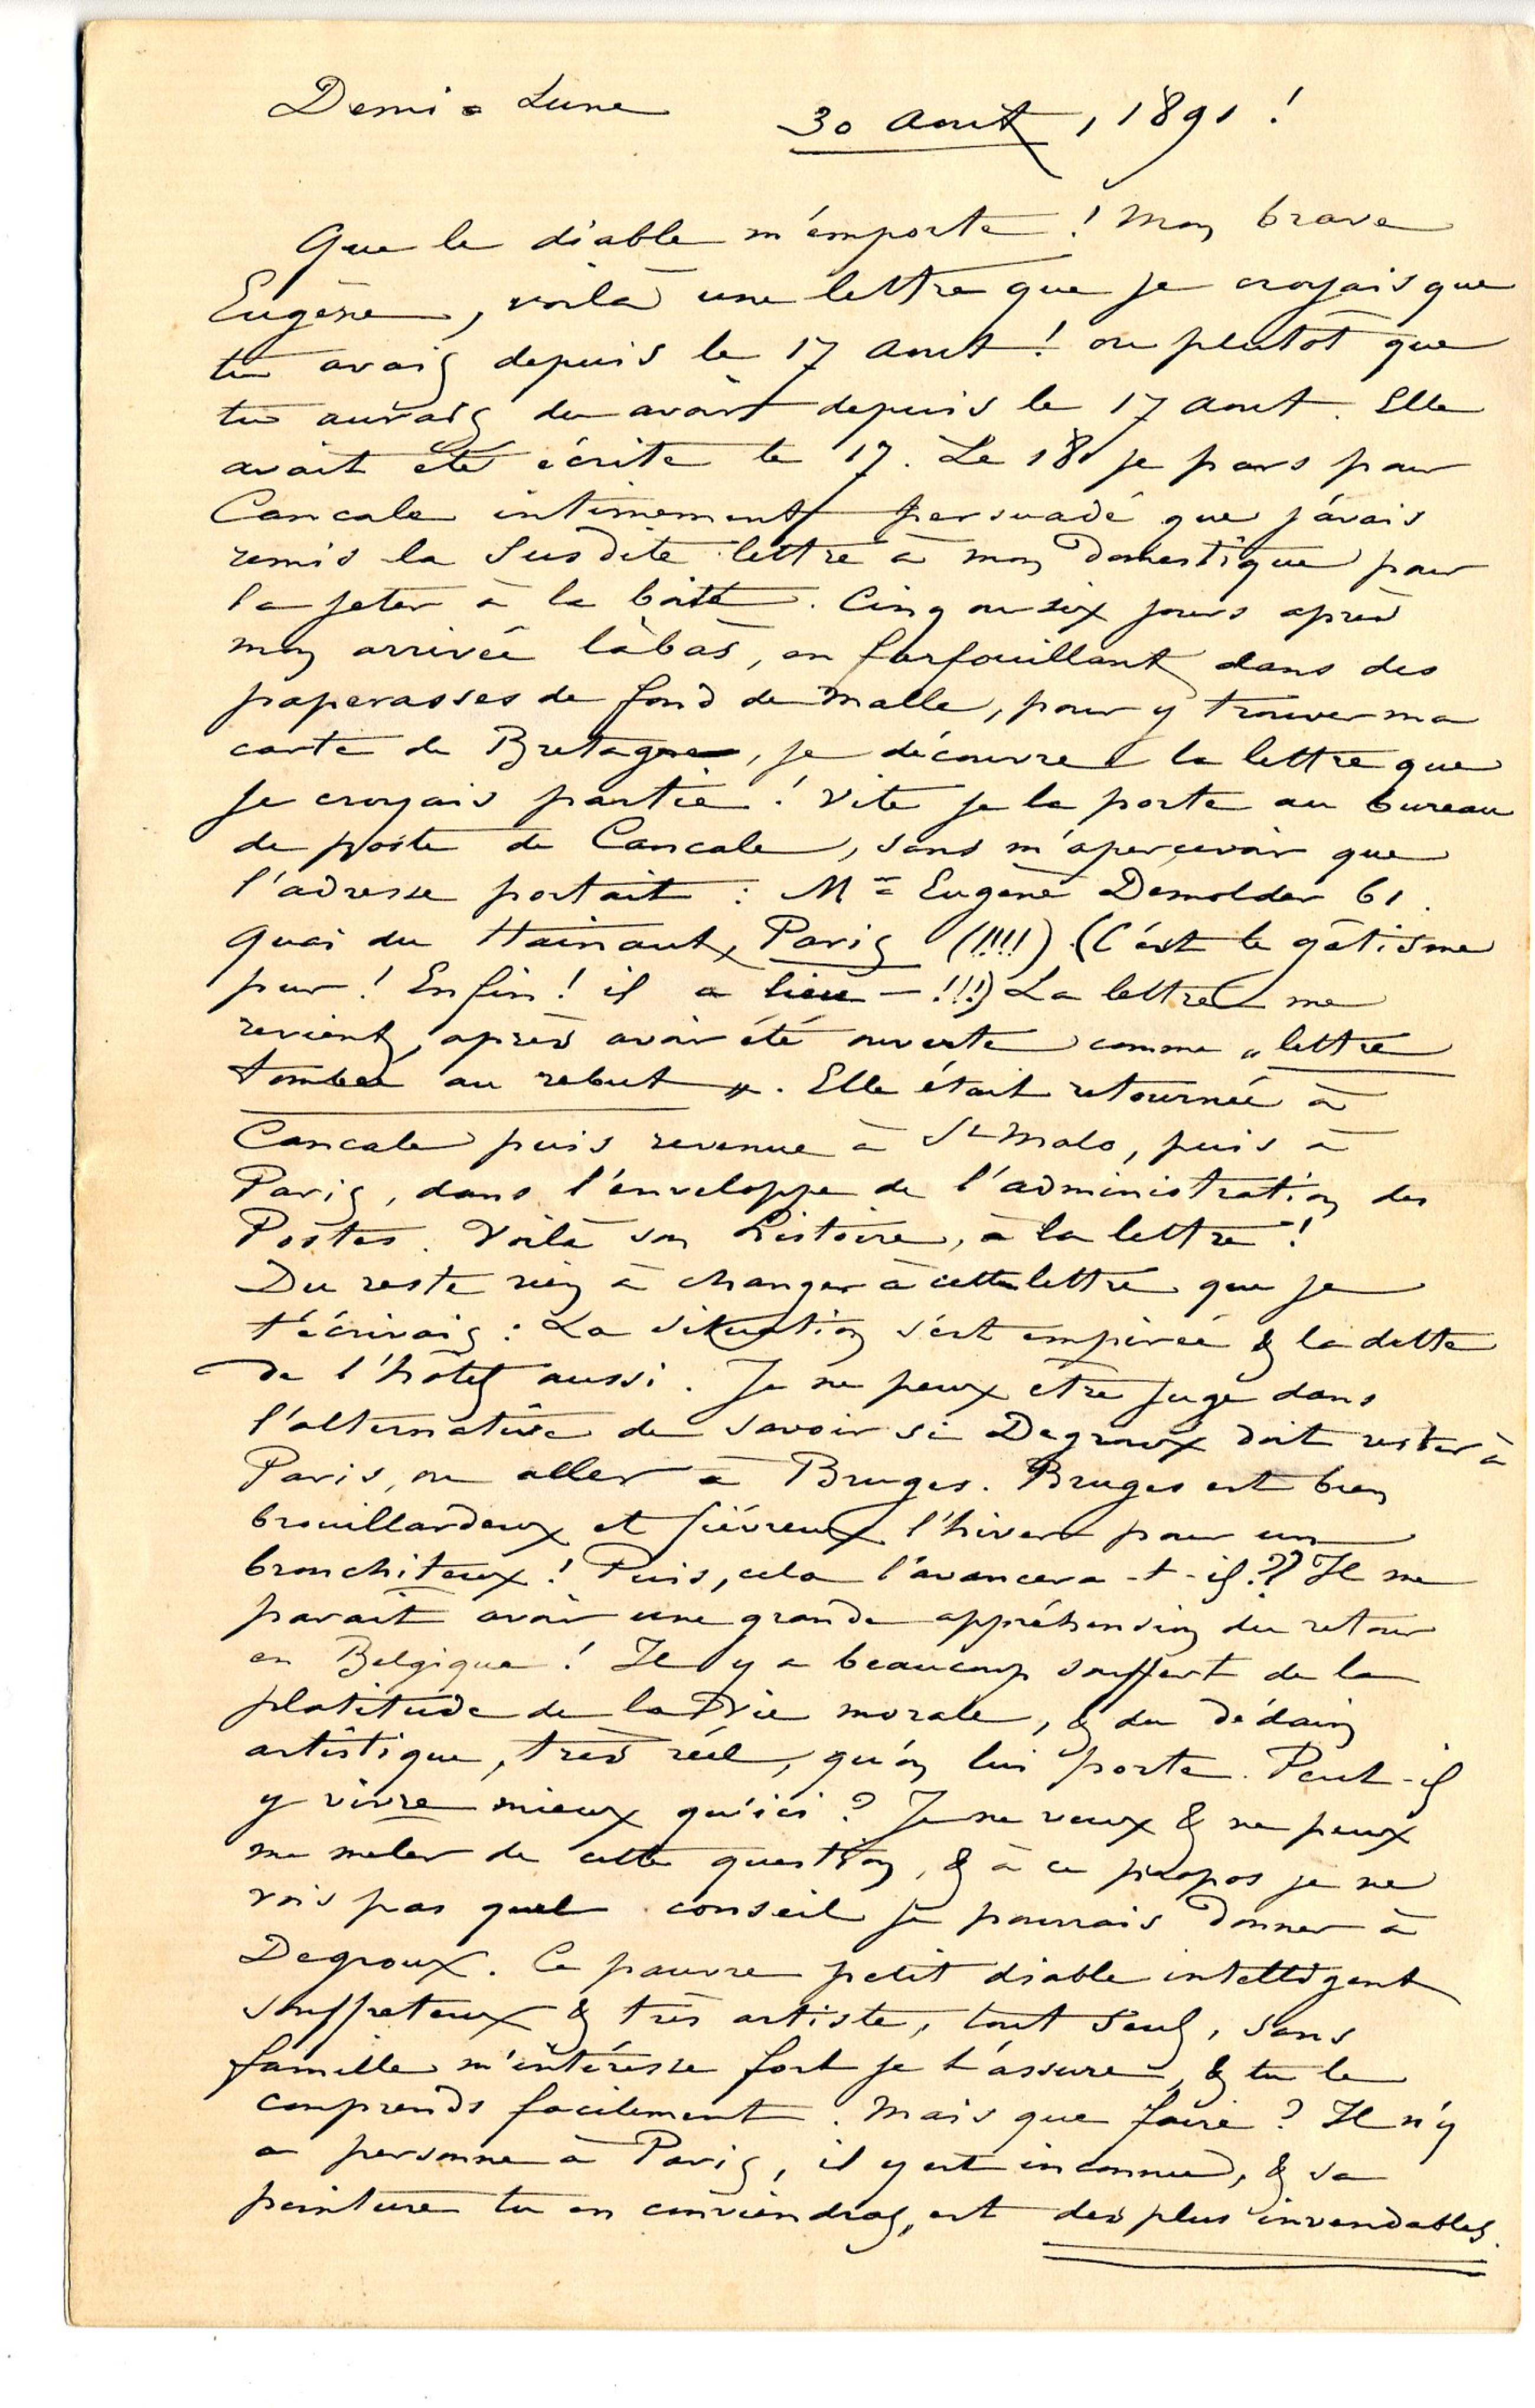 Demi-Lune 30 Aout, 1891 !
Que le diable m'emporte ! Mon brave
Eugène, voilà une lettre que je croyais que
tu avais depuis le 17 Aout ! ou plutôt que
tu aurais du avoir depuis le 17 Aout. Elle
avait été écrite le 17. Le 18 je pars pour
Cancale intimement persuadé que j'avais
remis la susdite lettre à mon domestique pour
la jeter à la boite. Cinq ou six jours après
mon arrivée làbas, en farfouillant dans des
paperasses de fond de malle, pour y trouver ma
carte de Bretagne, je découvre la lettre que
je croyais partie ! Vite je la porte au bureau
de poste de Cancale, sans m'apercevoir que
l'adresse portait : Mr Eugène Demolder 61.
Quai du Hainaut, Paris (!!!!) (C'est le gâtisme
pur ! Enfin ! il a lieu — !!!) La lettre me
revient, après avoir été ouverte comme « lettre
tombée au rebut ». Elle était retournée à
Cancale puis revenue à St Malo, puis à
Paris, dans l'enveloppe de l'administration des
Postes. Voilà son histoire, à la lettre !
Du reste rien à changer à cette lettre que je
t'écrivais : La situation s'est empirée & la dette
de l'hôtel aussi. Je ne peux etre juge dans
l'alternative de savoir si Degroux doit rester à
Paris, ou aller à Bruges. Bruges est bien
brouillardeux et fiévreux l'hiver pour un
bronchiteux ! Puis, cela l'avancera-t-il ?? Il me
parait avoir une grande appréhension du retour
en Belgique ! Il y a beaucoup souffert de la
platitude de la vie morale, & du dédain
artistique, très réel, qu'on lui porte. Peut-il
y vivre mieux qu'ici ? Je ne veux & ne peux
me meler de cette question, & à ce propos je ne
vois pas quel conseil je pourrais donner à
Degroux. Ce pauvre petit diable intelligent
souffreteux & très artiste, tout seul, sans
famille m'intéresse fort je t'assure, & tu le
comprends facilement. Mais que faire ? Il n'y
a personne à Paris, il y est inconnu, & sa
peinture tu en conviendras, est des plus invendables.